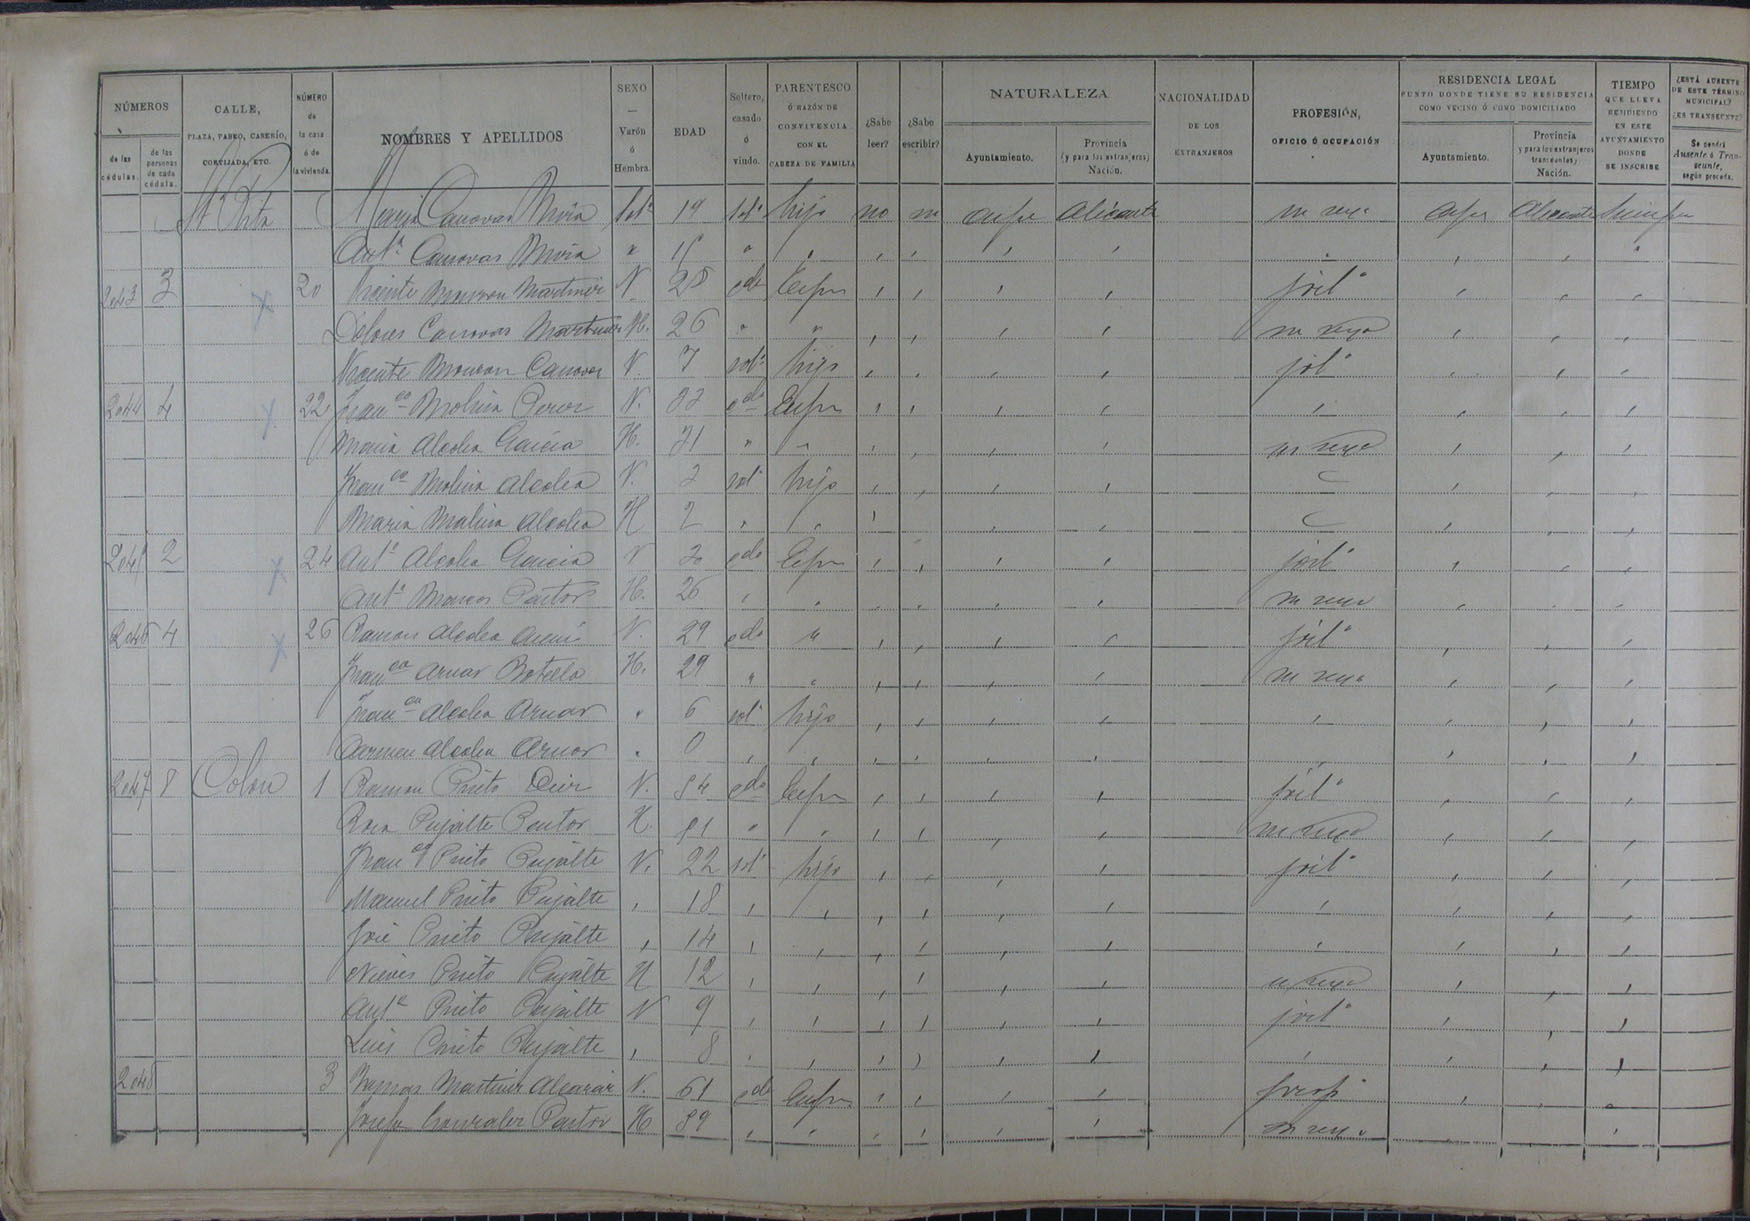 NÚMEROS
de las cédulas.
de las personas de cada cédula.
CALLE,
PLAZA, PASEO, CASERÍO,
CORTIJADA, ETC.
NÚMERO
de
la casa
ó de
la vivienda.
NOMBRES Y APELLIDOS
SEXO
—
Varón
ó
Hembra.
EDAD
Soltero,
casado
ó
viudo.
PARENTESCO
Ó RAZÓN DE
CONVIVENCIA
CON EL
CABEZA DE FAMILIA
¿Sabe leer?
¿Sabe escribir?
NATURALEZA
Ayuntamiento.
Provincia
(y para los extranjeros)
Nación.
NACIONALIDAD
DE LOS
EXTRANJEROS
PROFESIÓN,
OFICIO Ó OCUPACIÓN
RESIDENCIA LEGAL
PUNTO DONDE TIENE SU RESIDENCIA
COMO VECINO Ó COMO DOMICILIADO
Ayuntamiento.
Provincia
y para los extranjeros
transeuntes)
Nación.
TIEMPO
QUE LLEVA
RESIDIENDO
EN ESTE
AYUNTAMIENTO
DONDE
SE INSCRIBE
¿ESTÁ AUSENTE
DE ESTE TÉRMINO
MUNICIPAL?
¿ES TRANSEUNTE?
Se pondrá
Ausente ó Tran-
seunte,
según proceda.
Sta Rita Canovas 19 solª hijo no no Aspe Alicante Aspe Alicante
Antª Canovas " " " "
2043 3 20 Vicente Martinez V 28 cdo Cefª jorlº
Dolores Canovas Martinez H. 26 " "
Vicente Canovas V. 7 solº hijo jolº
2044 4 22 Franco Molina Perez V. 33 cdo Cefª
Maria Alcolea Garcia H. 31 " "
Franco Molina Alcolea V. 3 solº hijo
Maria Molina Alcolea H 2
2 24 Antº Alcolea Garcia V 30 cdo Cefª jorlº
Antª Pastor H. 26
2046 4 26 Ramon Alcolea V. 29 cdo " jorlº
Franca Aznar Botella H. 29 "
Franca Alcolea Aznar " 6 solª hijo
Carmen Alcolea Aznar " 0
2047 8 Colon 1 Ramon Prieto V. 54 cdo Cefª jorlº
Rosa Pujalte Pastor H. 51 "
Franco Prieto Pujalte V. 22 solº hijo jorlº
Manuel Prieto Pujalte 18
José Prieto Pujalte 14
Nieves Prieto Pujalte H 12
Antº Prieto Pujalte V 9 jorlº
Luis Prieto Pujalte 8
2048 3 Martinez Alcaraz V. 61 cdo Cefª
Josefa Gonzalez Pastor H 59